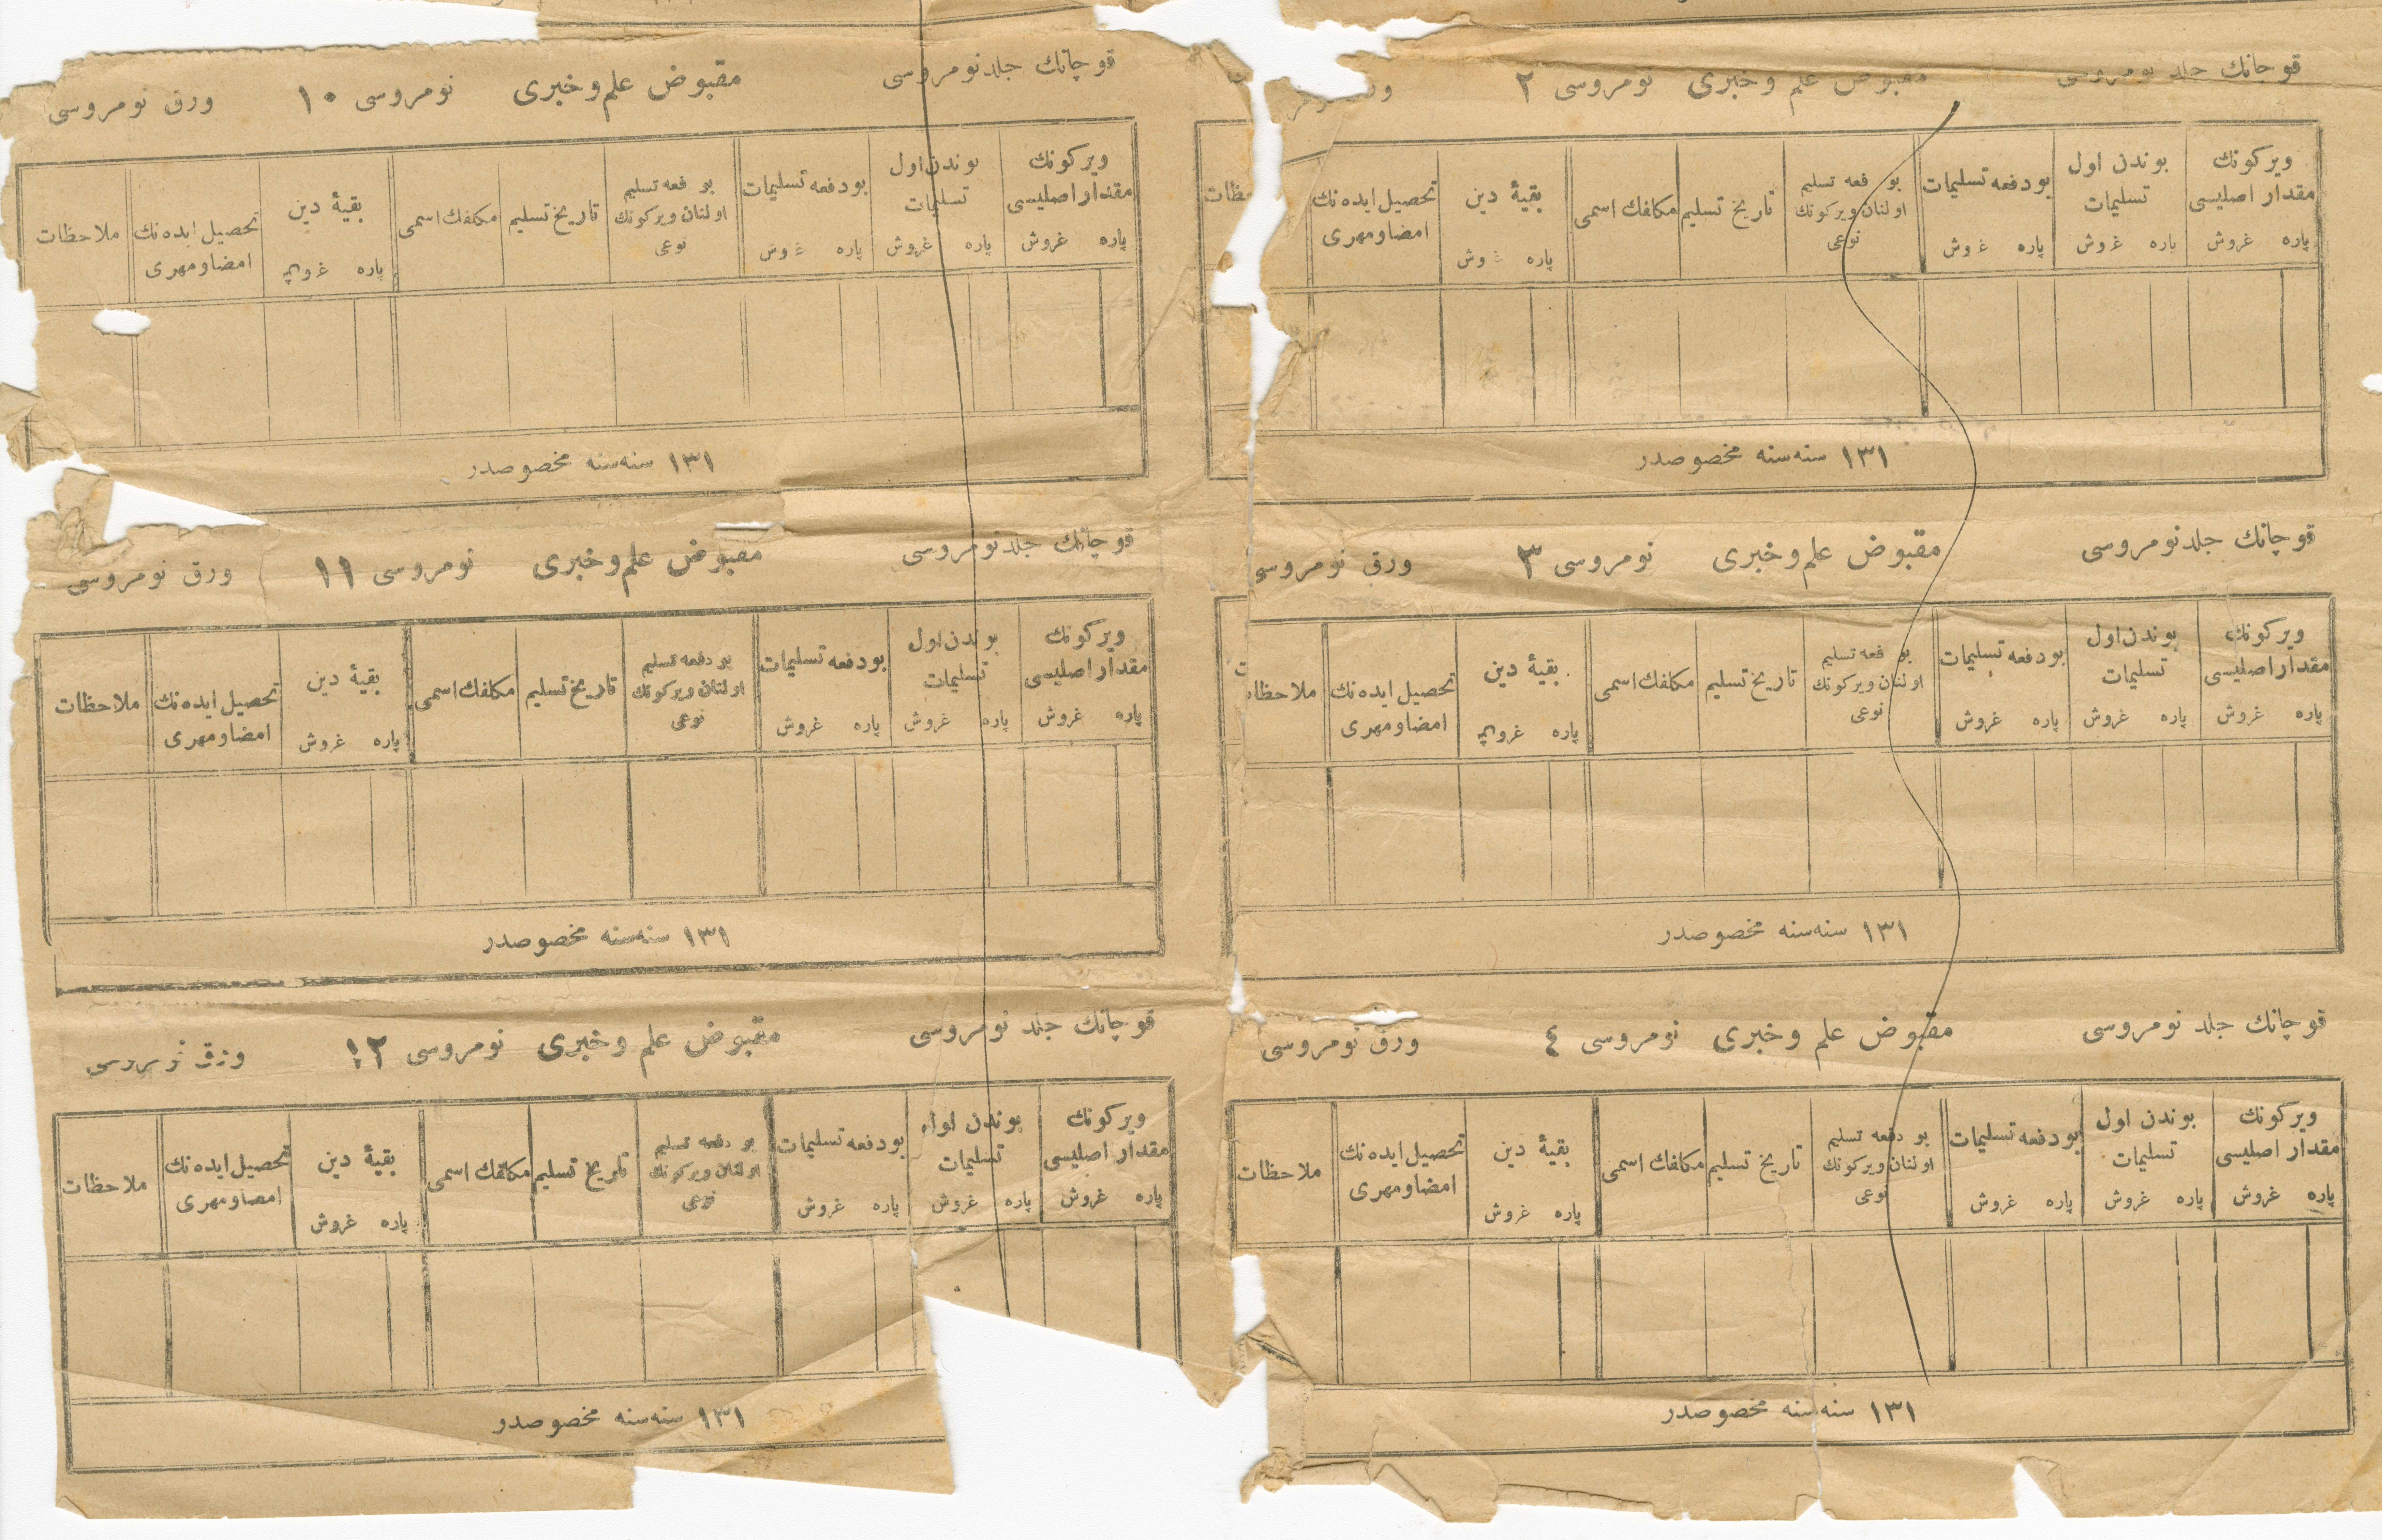 قوچانك جلد نومروسی مقبوض علم وخبری نومروسی ٢
ویركونك مقدار اصلیسی پاره غروش
بوندن اول تسلیمات پاره غروش
بودفعه تسلیمات پاره غروش
بو فعه تسلیم اولنان ویركونك نوعی
تاریخ تسلیم
مكلفك اسمی
بقیۀ دین پاره غروش
تحصیل ایده نك امضا و مهری
١٣١ سنه سنه مخصوصدر
قوچانك جلد نومروسی مقبوض علم وخبری نومروسی ٣ ورق نومروسی
ویركونك مقدار اصلیسی پاره غروش
بوندن اول تسلیمات پاره غروش
بودفعه تسلیمات پاره غروش
بو فعه تسلیم اولنان ویركونك نوعی
تاریخ تسلیم
مكلفك اسمی
بقیۀ دین پاره غروش
تحصیل ایده نك امضا و مهری
ملاحظات
١٣١ سنه سنه مخصوصدر
قوچانك جلد نومروسی مقبوض علم وخبری نومروسی ٤ ورق نومروسی
ویركونك مقدار اصلیسی پاره غروش
بوندن اول تسلیمات پاره غروش
بودفعه تسلیمات پاره غروش
بو دفعه تسلیم اولنان ویركونك نوعی
تاریخ تسلیم
مكلفك اسمی
بقیۀ دین پاره غروش
تحصیل ایده نك امضا و مهری
ملاحظات
١٣١ سنه سنه مخصوصدر
قوچانك جلد نومروسی مقبوض علم وخبری نومروسی ١٠ ورق نومروسی
ویركونك مقدار اصلیسی پاره غروش
بوندن اول تسلیمات پاره غروش
بودفعه تسلیمات پاره غروش
بو فعه تسلیم اولنان ویركونك نوعی
تاریخ تسلیم
مكلفك اسمی
بقیۀ دین پاره غروش
تحصیل ایده نك امضا و مهری
ملاحظات
١٣١ سنه سنه مخصوصدر
قوچانك جلد نومروسی مقبوض علم وخبری نومروسی ١١ ورق نومروسی
ویركونك مقدار اصلیسی پاره غروش
بوندن اول تسلیمات پاره غروش
بودفعه تسلیمات پاره غروش
بو دفعه تسلیم اولنان ویركونك نوعی
تاریخ تسلیم
مكلفك اسمی
بقیۀ دین پاره غروش
تحصیل ایده نك امضا و مهری
ملاحظات
١٣١ سنه سنه مخصوصدر
قوچانك جلد نومروسی مقبوض علم وخبری نومروسی ١٢ ورق نومروسی
ویركونك مقدار اصلیسی پاره غروش
بوندن اول تسلیمات پاره غروش
بودفعه تسلیمات پاره غروش
بو دفعه تسلیم اولنان ویركونك نوعی
تاریخ تسلیم
مكلفك اسمی
بقیۀ دین پاره غروش
تحصیل ایده نك امضا و مهری
ملاحظات
١٣١ سنه سنه مخصوصدر